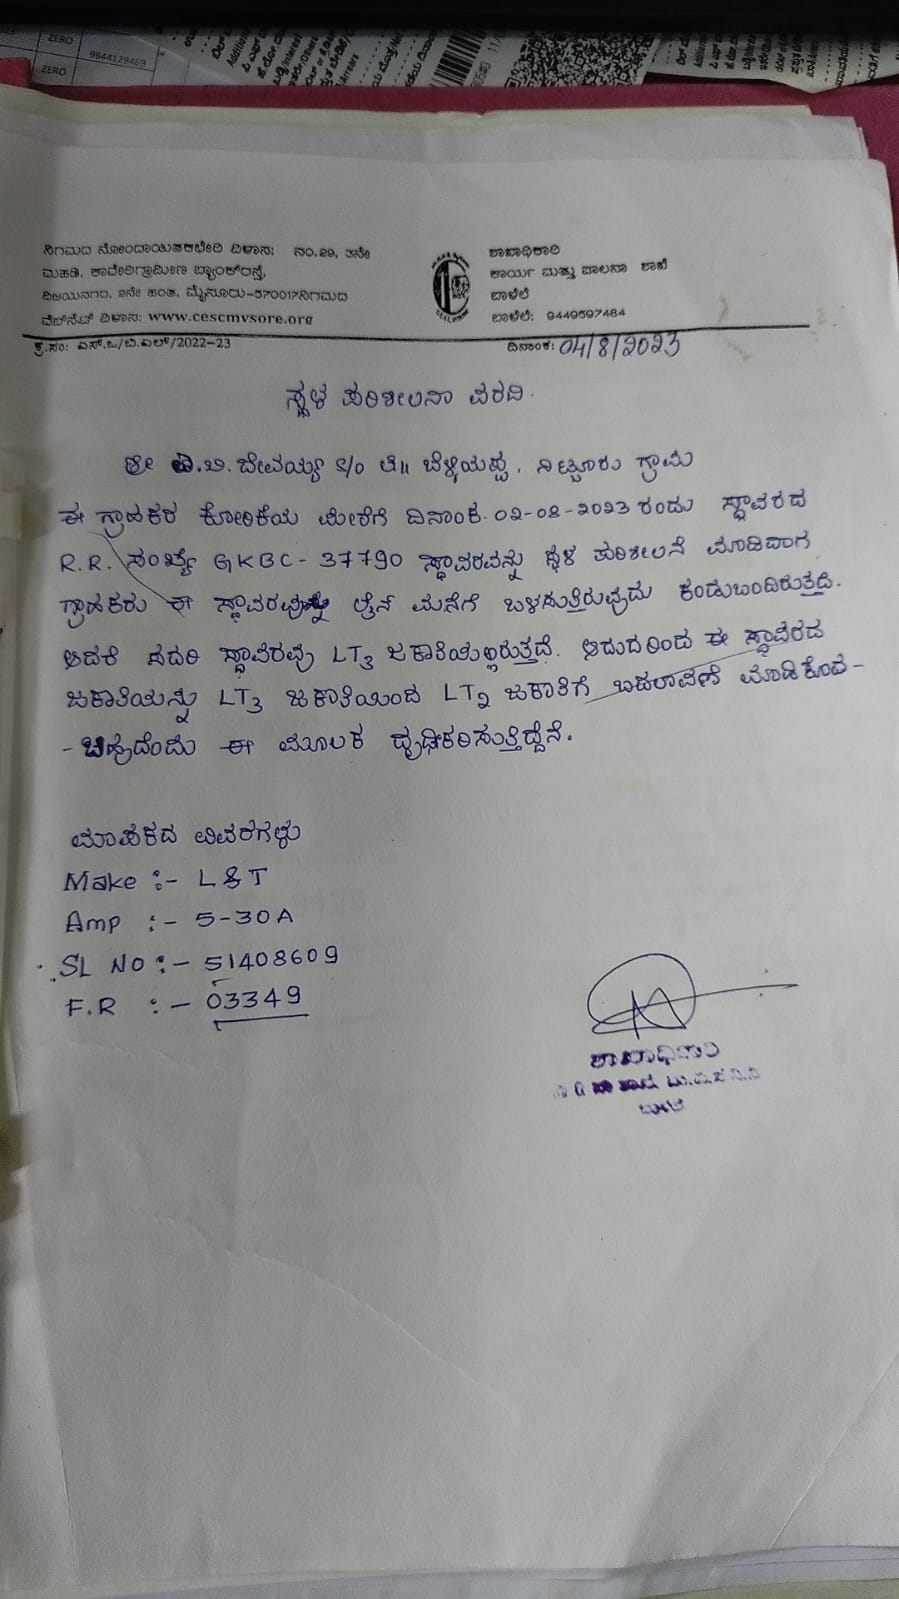 ZERO
9844129469
ZERO
ನಿಗಮದ ನೋಂದಾಯಿತಕಛೇರಿ ವಿಳಾಸ: ನಂ.29, 3ನೇ
ಮಹಡಿ, ಕಾವೇರಿಗ್ರಾಮೀಣ ಬ್ಯಾಂಕ್‌ರಸ್ತೆ,
ವಿಜಯನಗರ, 2ನೇ ಹಂತ, ಮೈಸೂರು-570017ನಿಗಮದ
ವೆಬ್‌ಸೈಟ್ ವಿಳಾಸ: www.cescmysore.org
ಶಾಖಾಧಿಕಾರಿ
ಕಾರ್ಯ ಮತ್ತು ಪಾಲನಾ ಶಾಖೆ
ಬಾಳೆಲೆ
ಬಾಳೆಲೆ: 9449597484
ಕ್ರ.ಸಂ: ಎಸ್.ಒ/ಬಿ.ಎಲ್/2022-23 ದಿನಾಂಕ: 04/8/2023
ಸ್ಥಳ ಪರಿಶೀಲನಾ ವರದಿ.
ಶ್ರೀ ಬಿ. ದೇವಯ್ಯ S/o ಲೇ|| ಬೆಳ್ಳಿಯಪ್ಪ, ನಿಟ್ಟೂರು ಗ್ರಾಮ
ಈ ಗ್ರಾಹಕರ ಕೋರಿಕೆಯ ಮೇರೆಗೆ ದಿನಾಂಕ. 02-08-2023 ರಂದು ಸ್ಥಾವರದ
R.R. ಸಂಖ್ಯೆ GKBC-37790 ಸ್ಥಾವರವನ್ನು ಸ್ಥಳ ಪರಿಶೀಲನೆ ಮಾಡಿದಾಗ
ಗ್ರಾಹಕರು ಈ ಸ್ಥಾವರವನ್ನು ಲೈನ್ ಮನೆಗೆ ಬಳಸುತ್ತಿರುವುದು ಕಂಡುಬಂದಿರುತ್ತದೆ.
ಆದರೆ ಸದರಿ ಸ್ಥಾವರವು LT3 ಜಕಾತಿಯಲ್ಲಿರುತ್ತದೆ. ಆದುದರಿಂದ ಈ ಸ್ಥಾವರದ
ಜಕಾತಿಯನ್ನು LT3 ಜಕಾತಿಯಿಂದ LT2 ಜಕಾತಿಗೆ ಬದಲಾವಣೆ ಮಾಡಿಕೊಡ-
-ಬಹುದೆಂದು ಈ ಮೂಲಕ ದೃಢೀಕರಿಸುತ್ತಿದ್ದೇನೆ.
ಮಾಪಕದ ವಿವರಗಳು
Make :- L&T
Amp :- 5-30A
SL NO :- 51408609
F.R :- 03349
ಶಾಖಾಧಿಕಾರಿ